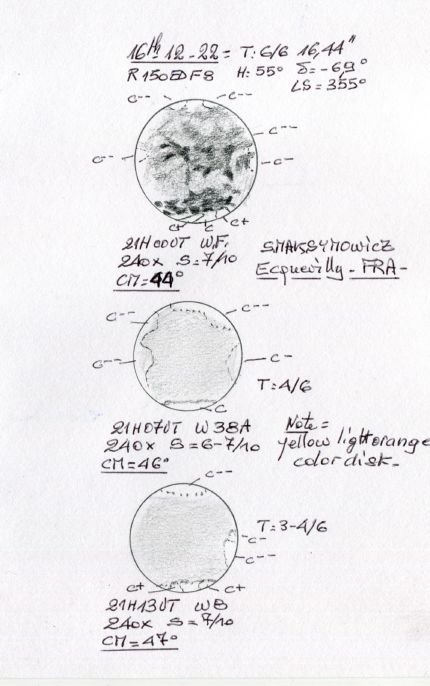 16th 12-22 = T: 6/6 16,44"
R150EDF8 H: 55° δ=-6,9°
LS = 355°
C-- C--
C--
C-- C-
C+ C C+
21H00UT W.F. SMAKSYMOWICZ
240x S=7/10 Ecquevilly - FRA-
CM=44°
C-- C--
C-- C-
T: 4/6
C
21H07UT W38A Note =
240x S=6-7/10 yellow light orange
CM=46° color disk.
C--
T: 3-4/6
C-
C--
C+ C+
21H13UT W8
240x S=7/10
CM=47°